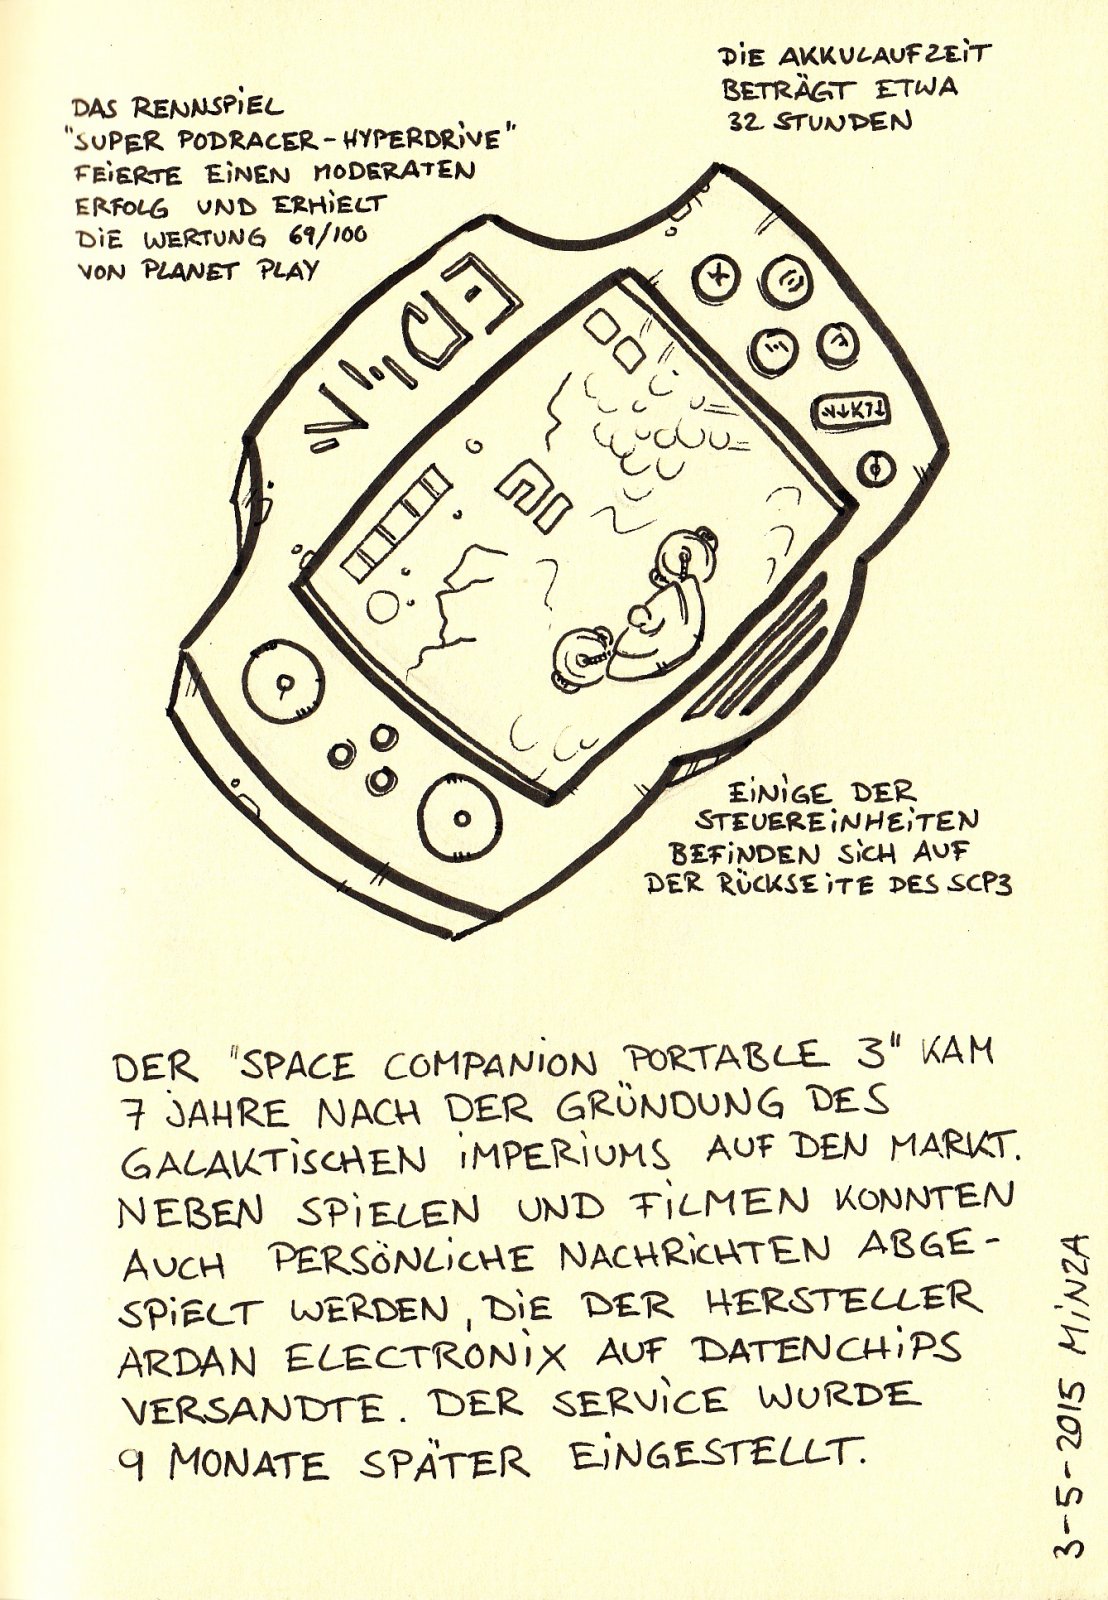 DIE AKKULAUFZEIT
BETRÄGT ETWA
32 STUNDEN
DAS RENNSPIEL
"SUPER PODRACER-HYPERDRIVE"
FEIERTE EINEN MODERATEN
ERFOLG UND ERHIELT
DIE WERTUNG 69/100
VON PLANET PLAY
EINIGE DER
STEUEREINHEITEN
BEFINDEN SICH AUF
DER RÜCKSEITE DES SCP3
DER "SPACE COMPANION PORTABLE 3" KAM
7 JAHRE NACH DER GRÜNDUNG DES
GALAKTISCHEN IMPERIUMS AUF DEN MARKT.
NEBEN SPIELEN UND FILMEN KONNTEN
AUCH PERSÖNLICHE NACHRICHTEN ABGE-
SPIELT WERDEN, DIE DER HERSTELLER
ARDAN ELECTRONIX AUF DATENCHIPS
VERSANDTE. DER SERVICE WURDE
9 MONATE SPÄTER EINGESTELLT.
3-5-2015 MINZA